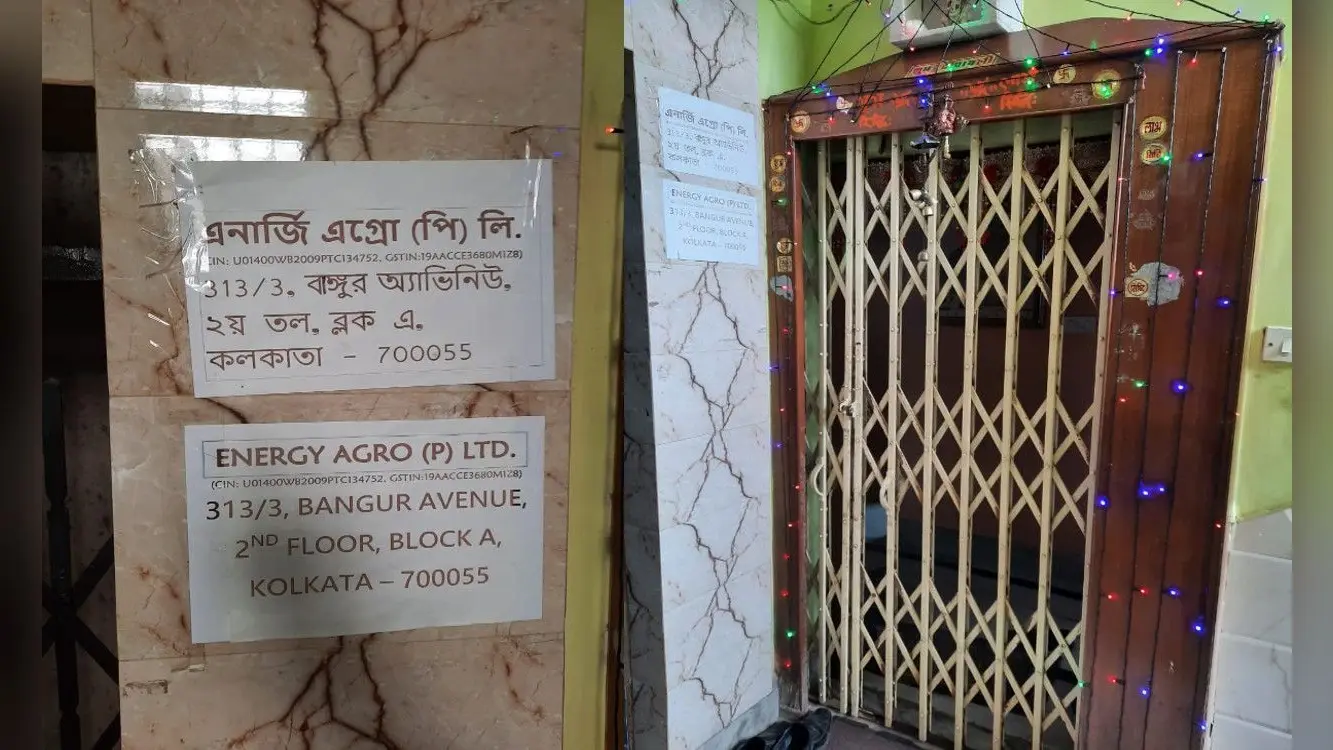 এনার্জি এগ্রো (পি) লি.
CIN: U01400WB2009PTC134752, GSTIN:19AACCE3680M1Z8)
313/3, বাঙ্গুর অ্যাভিনিউ,
২য় তল, ব্লক এ,
কলকাতা – 700055
ENERGY AGRO (P) LTD.
(CIN: U01400WB2009PTC134752, GSTIN:19AACCE3680M1Z8)
313/3, BANGUR AVENUE,
2ND FLOOR, BLOCK A,
KOLKATA – 700055
এনার্জি এগ্রো (পি) লি.
313/3, বাঙ্গুর অ্যাভিনিউ,
২য় তল, ব্লক এ,
কলকাতা 700055
ENERGY AGRO (P) LTD.
313/3, BANGUR AVENUE,
2ND FLOOR, BLOCK A,
KOLKATA – 700055